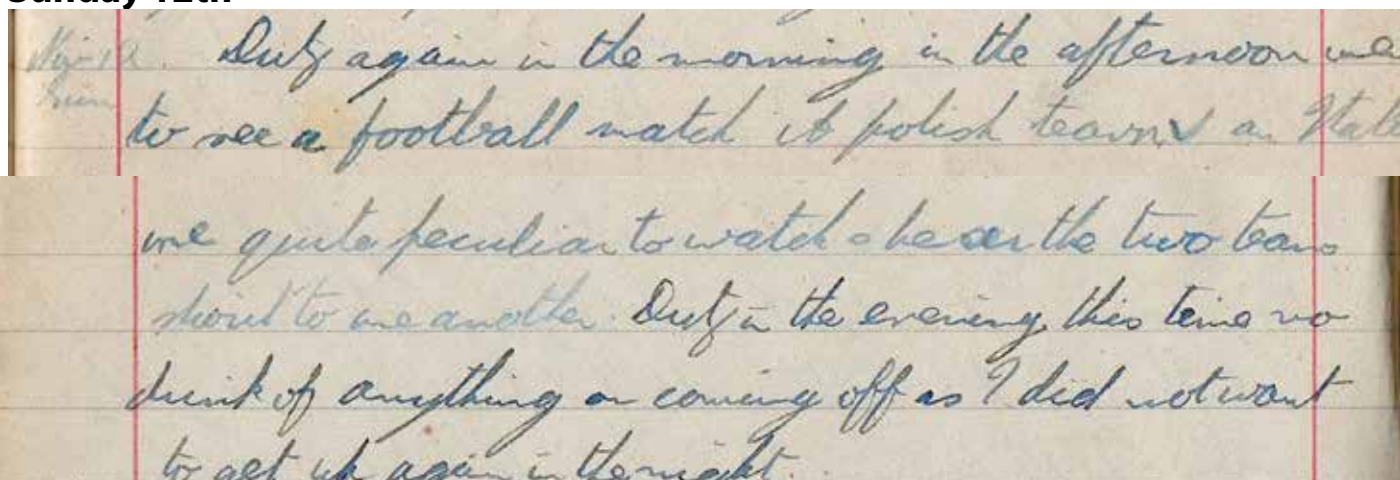 Sunday 12th
Duty again in the morning in the afternoon
to see a football match polish teams v an
one quite peculiar to watch & hear the two teams
shout to one another. Duty in the evening this time no
drink of anything on coming off as I did not want
to get up again in the night.